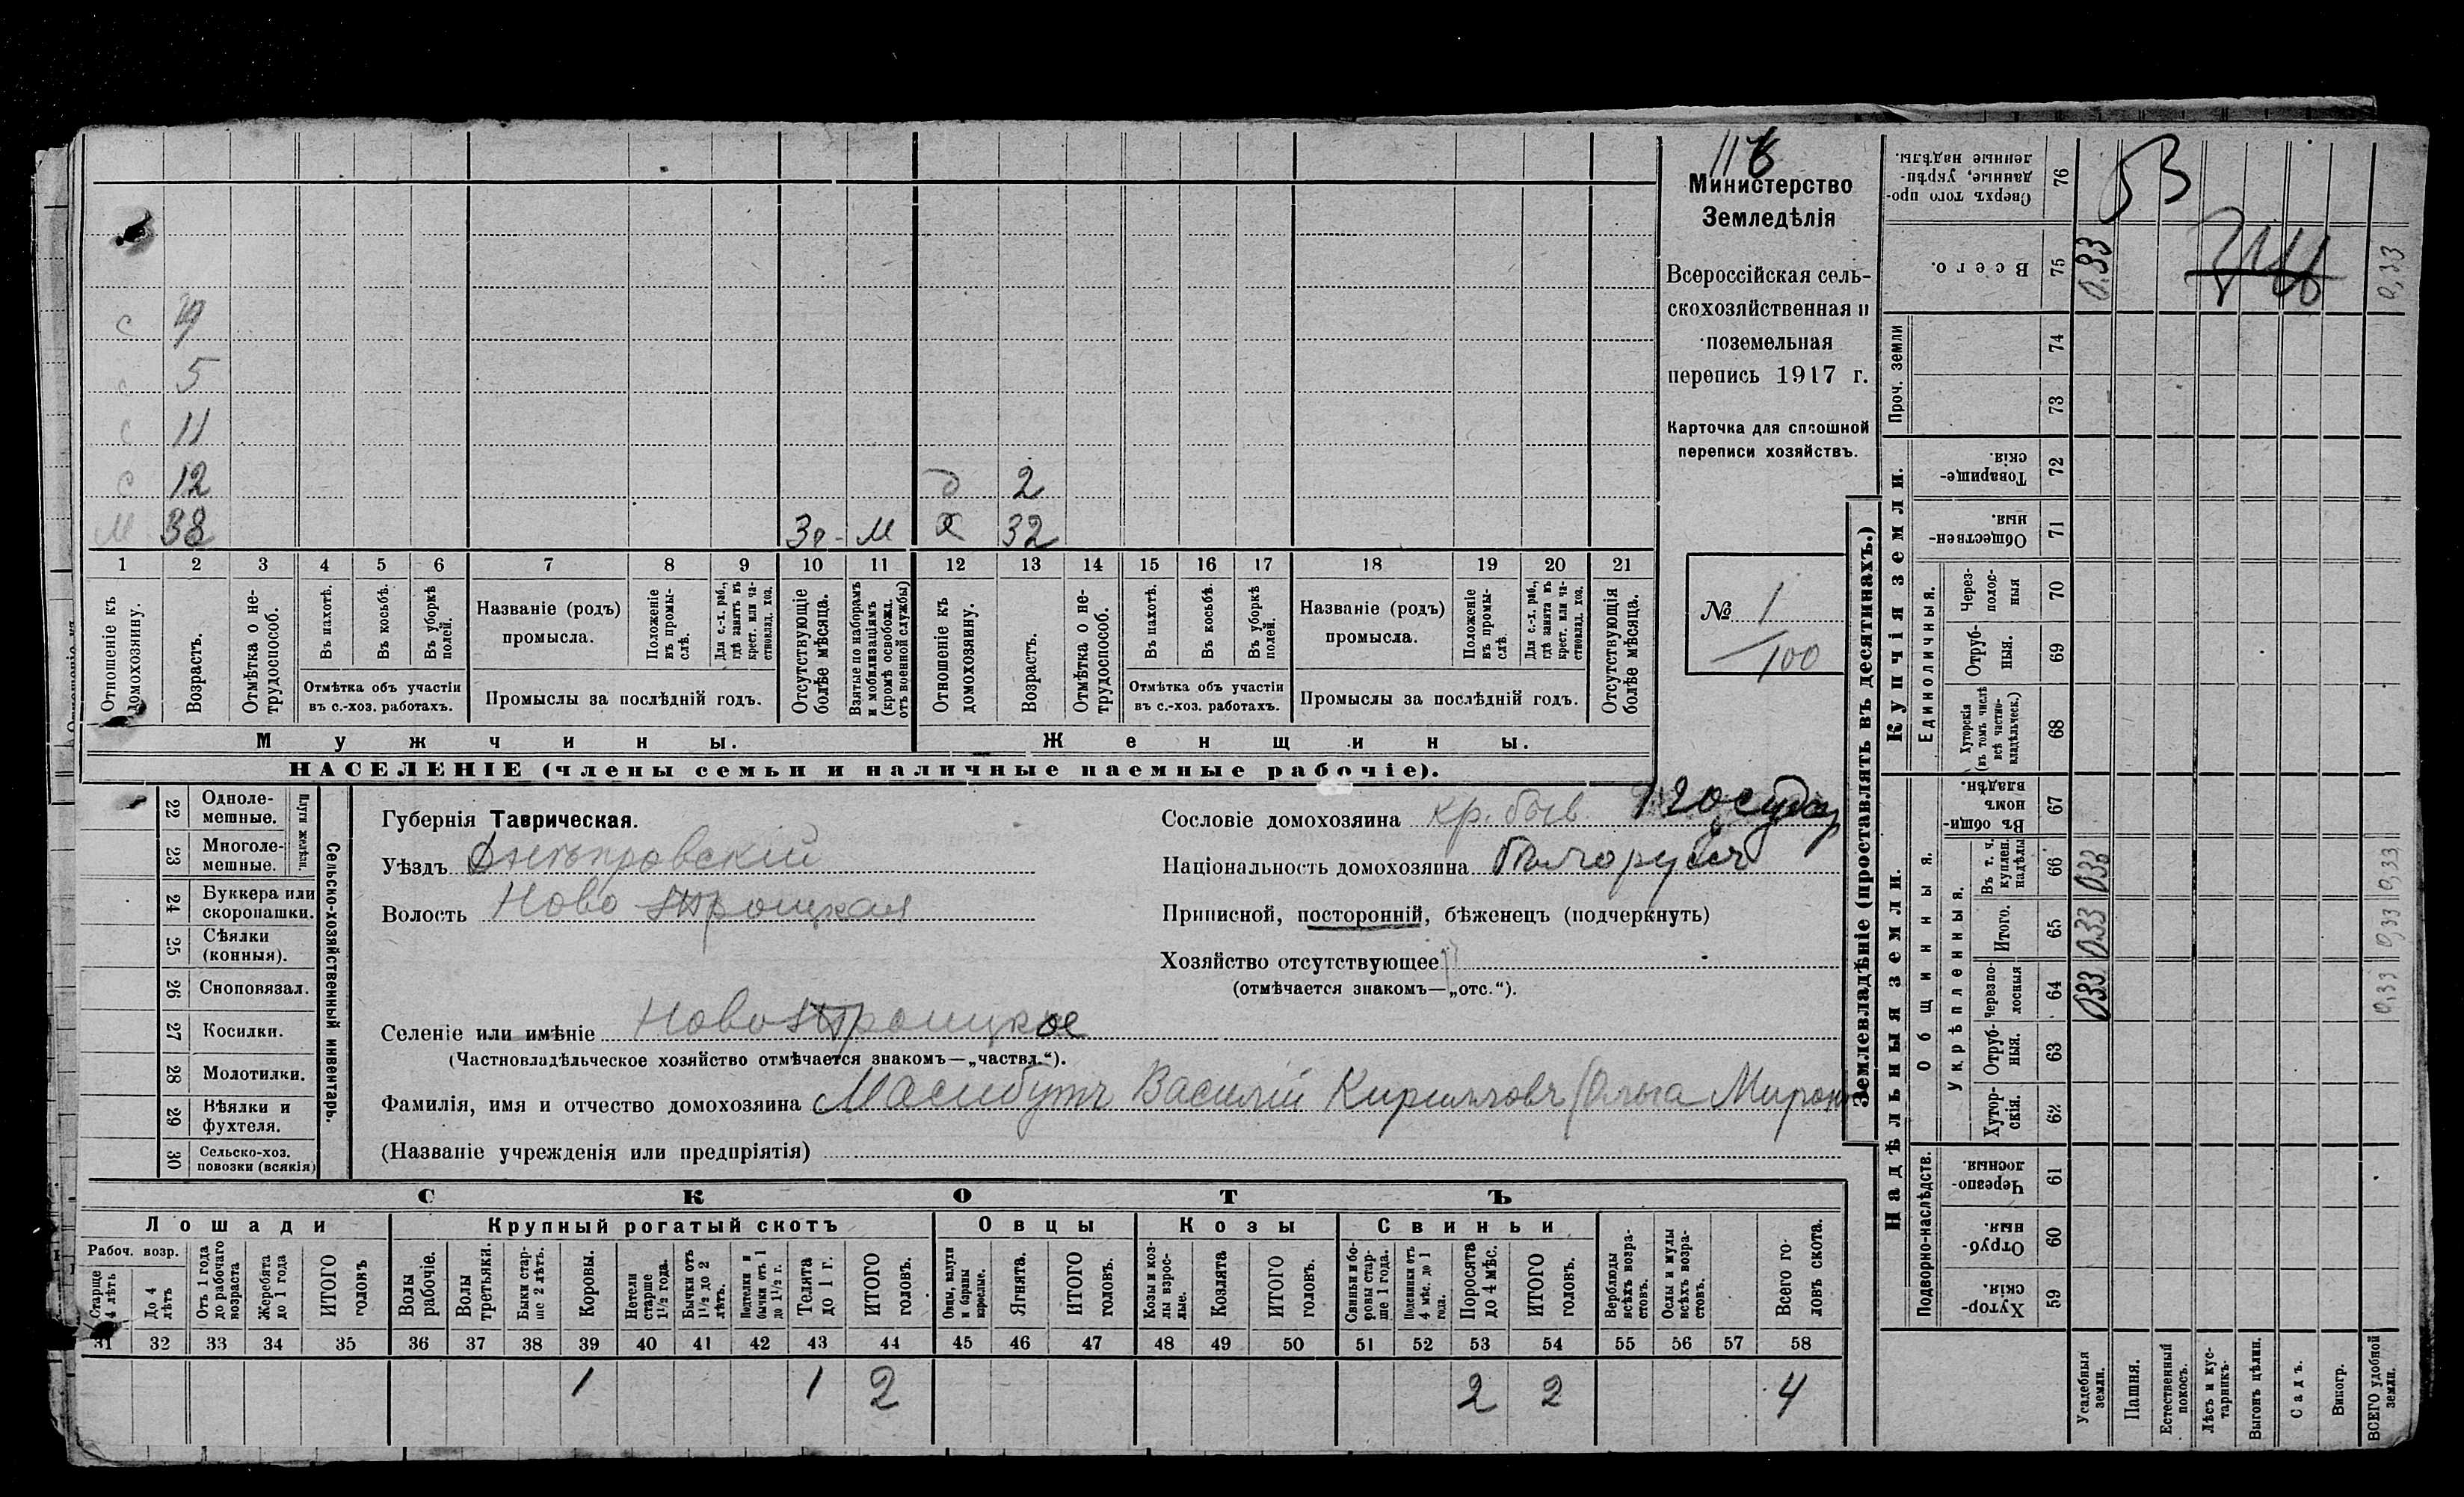 118
Министерство
Земледѣлія
Всероссійская сель-
скохозяйственная и
поземельная
перепись 1917 г.
Карточка для сплошной
переписи хозяйствъ.
№ 1
100
с 5
с 11
с 12 2
м 38 м 32
1 2 3 4 5 6 7 8 9 10 11 12 13 14 15 16 17 18 19 20 21
Отношеніе къ домохозяину.
Возрастъ.
Отмѣтка о не-трудоспособ.
Въ пахотѣ.
Въ косьбѣ.
Въ уборкѣ полей.
Отмѣтка объ участіи
въ с.-хоз. работахъ.
Названіе (родъ)
промысла.
Положеніе въ промы-слѣ.
Для с.-х. раб., гдѣ занятъ въ крест. или ча-стновлад. хоз.
Промыслы за послѣдній годъ.
Отсутствующіе болѣе мѣсяца.
Взятые по наборамъ и мобилизаціямъ (кромѣ освобожд. отъ военной службы)
Отношеніе къ домохозяину.
Возрастъ.
Отмѣтка о не-трудоспособ.
Въ пахотѣ.
Въ косьбѣ.
Въ уборкѣ полей.
Отмѣтка объ участіи
въ с.-хоз. работахъ.
Названіе (родъ)
промысла.
Положеніе въ промы-слѣ.
Для с.-х. раб., гдѣ занята въ крест. или ча-стновлад. хоз.
Промыслы за послѣдній годъ.
Отсутствующія болѣе мѣсяца.
Мужчины.
Женщины.
НАСЕЛЕНІЕ (члены семьи и наличные наемные рабочіе).
22 Одноле-мешные.
23 Многоле-мешные.
Плуги желѣзн.
24 Буккера или скоропашки.
25 Сѣялки (конныя).
26 Сноповязал.
27 Косилки.
28 Молотилки.
29 Вѣялки и фухтеля.
30 Сельско-хоз. повозки (всякія)
Сельско-хозяйственный инвентарь.
Губернія Таврическая.
Уѣздъ Днѣпровскій
Волость Ново Троицкая
Селеніе или имѣніе Ново Троицкое
(Частновладѣльческое хозяйство отмѣчается знакомъ—„частвл.“).
Фамилія, имя и отчество домохозяина Масибутъ Василій Кирилловъ (Ольга Мирон
(Названіе учрежденія или предпріятія)
Сословіе домохозяина кр. быв. государ
Національность домохозяина
Приписной, посторонній, бѣженецъ (подчеркнуть)
Хозяйство отсутствующее
(отмѣчается знакомъ—„отс.“).
СКОТЪ
Лошади
Крупный рогатый скотъ
Овцы
Козы
Свиньи
Рабоч. возр.
Старше 4 лѣтъ
До 4 лѣтъ
Отъ 1 года до рабочаго возраста
Жеребята до 1 года
ИТОГО головъ
Волы рабочіе.
Волы третьяки.
Быки стар-ше 2 лѣтъ.
Коровы.
Нетели старше 1½ года.
Бычки отъ 1½ до 2 лѣтъ.
бычки отъ 1 до 1½ г.
Телята до 1 г.
ИТОГО головъ.
Овцы, валухи и бараны взрослые.
Ягнята.
ИТОГО головъ.
Козы и коз-лы взрос-лые.
Козлята
ИТОГО головъ.
Свиньи и бо-ровы стар-ше 1 года.
Подсвинки отъ 4 мѣс. до 1 года.
Поросята до 4 мѣс.
ИТОГО головъ.
Верблюды всѣхъ возра-стовъ.
Ослы и мулы всѣхъ возра-стовъ.
Всего го-ловъ скота.
31 32 33 34 35 36 37 38 39 40 41 42 43 44 45 46 47 48 49 50 51 52 53 54 55 56 57 58
1 1 2 2 2 4
Землевладѣніе (проставлять въ десятинахъ.)
Купчія земли.
Надѣльныя земли.
Сверхъ того про-данные, укрѣп-ленные надѣлы. 76
Всего. 75 0.33 0,33
Проч. земли
74
73
Товарище-скія. 72
Обществен-ныя. 71
Единоличныя.
Через-полос-ныя 70
Отруб-ныя. 69
Хуторскія (въ томъ числѣ всѣ частно-владѣльческ.) 68
Общинныя.
Въ общин-номъ владѣн. 67
Укрѣпленныя.
Въ т. ч. куплен. надѣлы 66 0.33 0,33
Итого. 65 0.33 0,33
Черезпо-лосныя 64 0.33 0,33
Отруб-ныя. 63
Хутор-скія. 62
Подворно-наслѣдств.
Черезпо-лосныя. 61
Отруб-ныя. 60
Хутор-скія. 59
Усадебныя земли.
Пашня.
Естественный покосъ.
Лѣсъ и кус-тарникъ.
Выгонъ цѣлин.
Садъ.
Виногр.
ВСЕГО удобной земли.